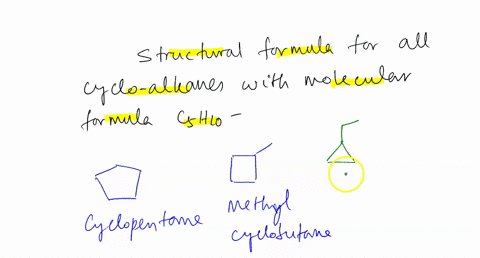 Structural formula for all
cyclo-alkanes with molecular
formula C5H10 -
Cyclopentane
Methyl
cyclobutane